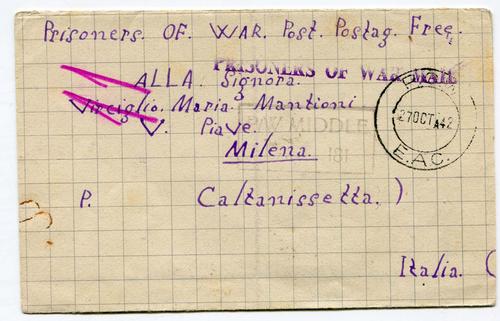 Prisoners. OF. WAR. Post. Postag. Free.
PRISONERS OF WAR MAIL
ALLA. Signora.
Virciglio. Maria. Mantioni
V. Piave.
Milena.
P. Caltanissetta. )
Italia. (
27 OCT A 42
E.A.C.
P.W MIDDLE
181